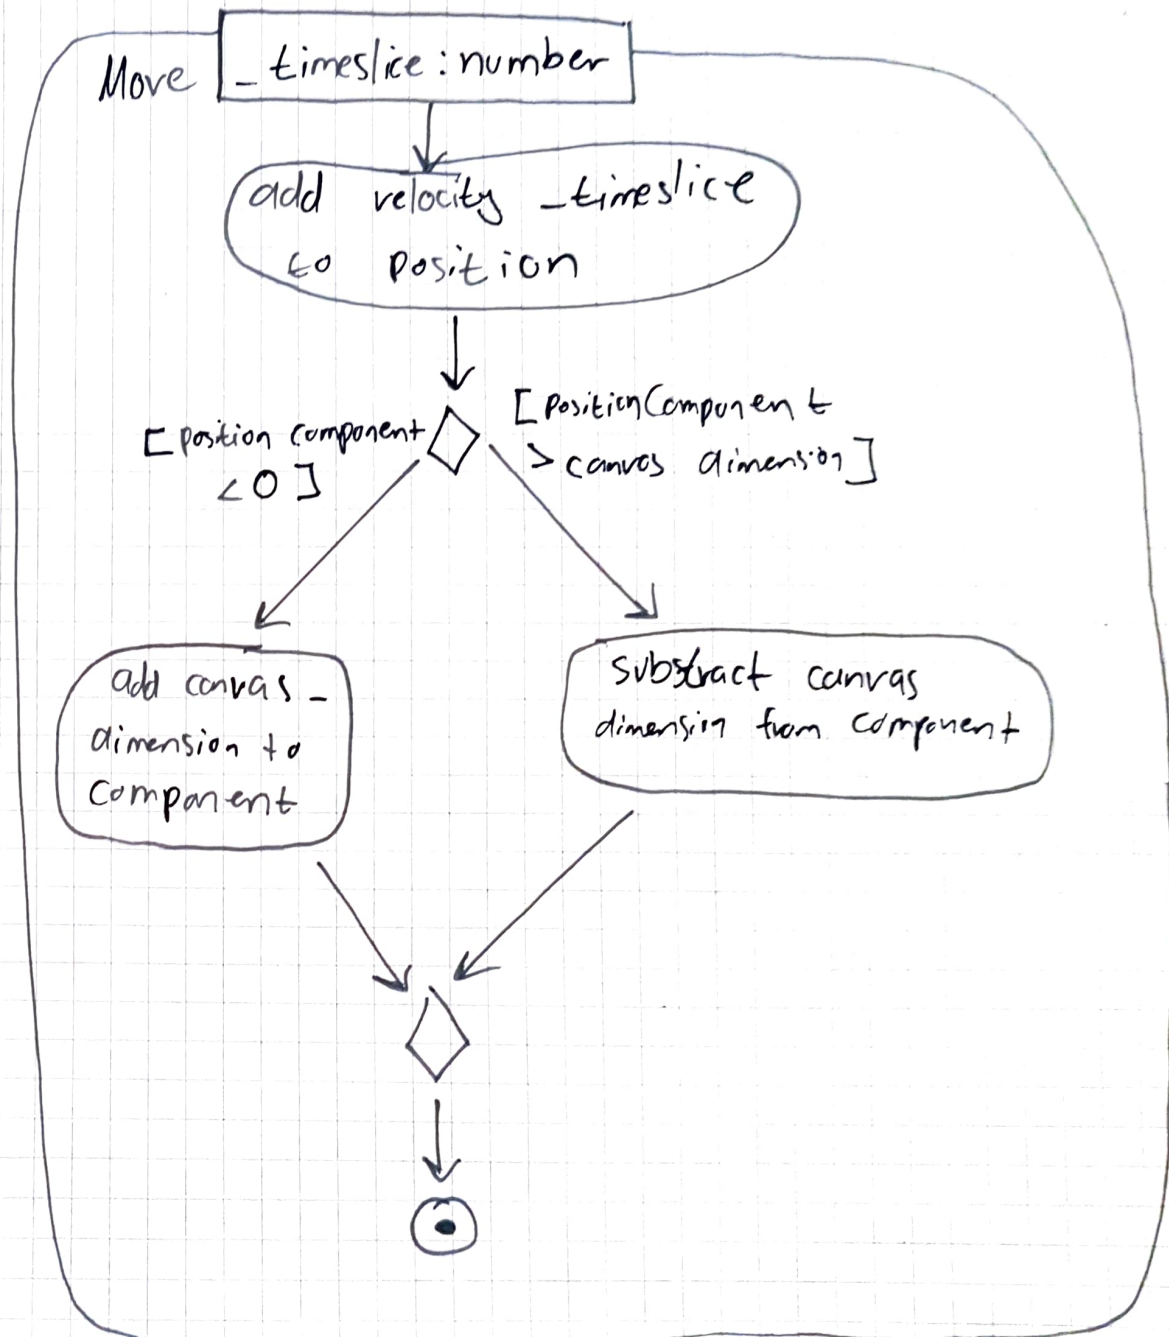 Move
_ timeslice : number
add velocity _timeslice
to position
[ position component
< 0 ]
[ PositionComponent
> canvas dimension ]
add canvas _
dimension to
component
substract canvas
dimension from component